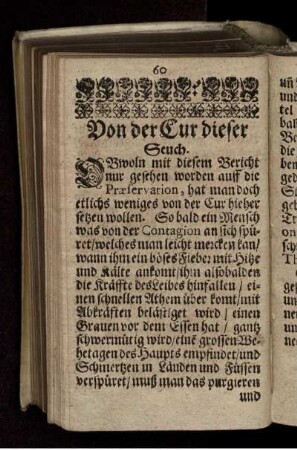 60
Von der Cur dieser
Seuch.
OBwoln mit diesem Bericht
nur gesehen worden auff die
Præservarion, hat man doch
etlichs weniges von der Cur hieher
setzen wollen. So bald ein Mensch
was von der Contagion an sich spü-
ret/welches man leicht mercken kan/
wann ihm ein böses Fieber mit Hitze
und Kälte ankomt/ihm alsobalden
die Kräffte des Leibes hinfallen/ ei-
nen schnellen Athem über komt/mit
Abkräften belästiget wird/ einen
Grauen vor dem Essen hat/ gantz
schwermütig wird/eine grossen We-
hetagen des Haupts empfindet/und
Schmertzen in Länden und Füssen
verspüret/ muß man das purgieren
und